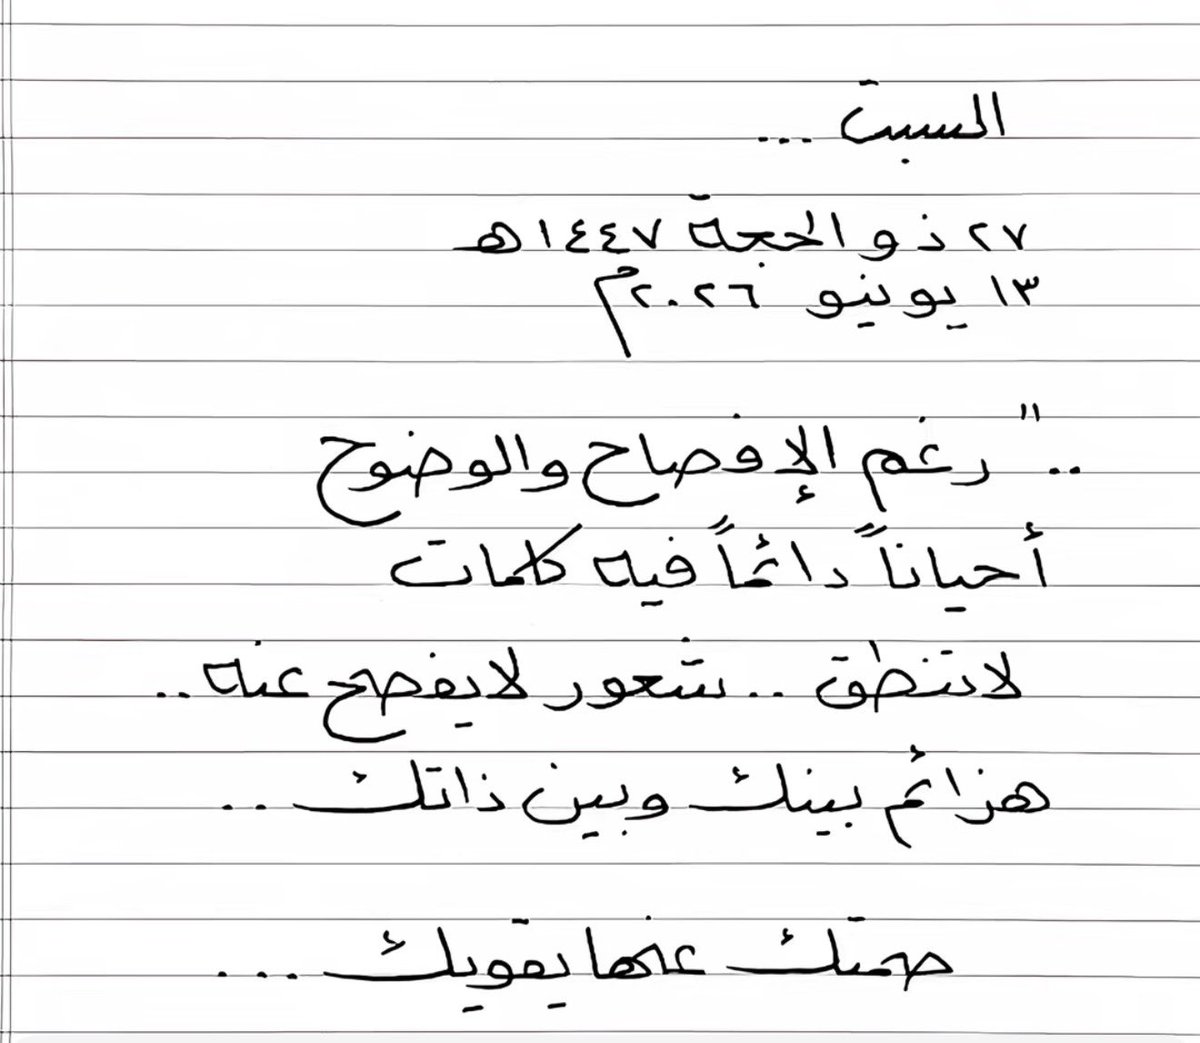 السبت ...
٢٧ ذو الحجة ١٤٤٧هـ
١٣ يونيو ٢٠٢٦م
.. "رغم الإفصاح والوضوح
أحياناً دائماً فيه كلمات
لاتنطق .. شعور لايفصح عنه ..
هزائم بينك وبين ذاتك ..
صمتك عنها يقويك ...